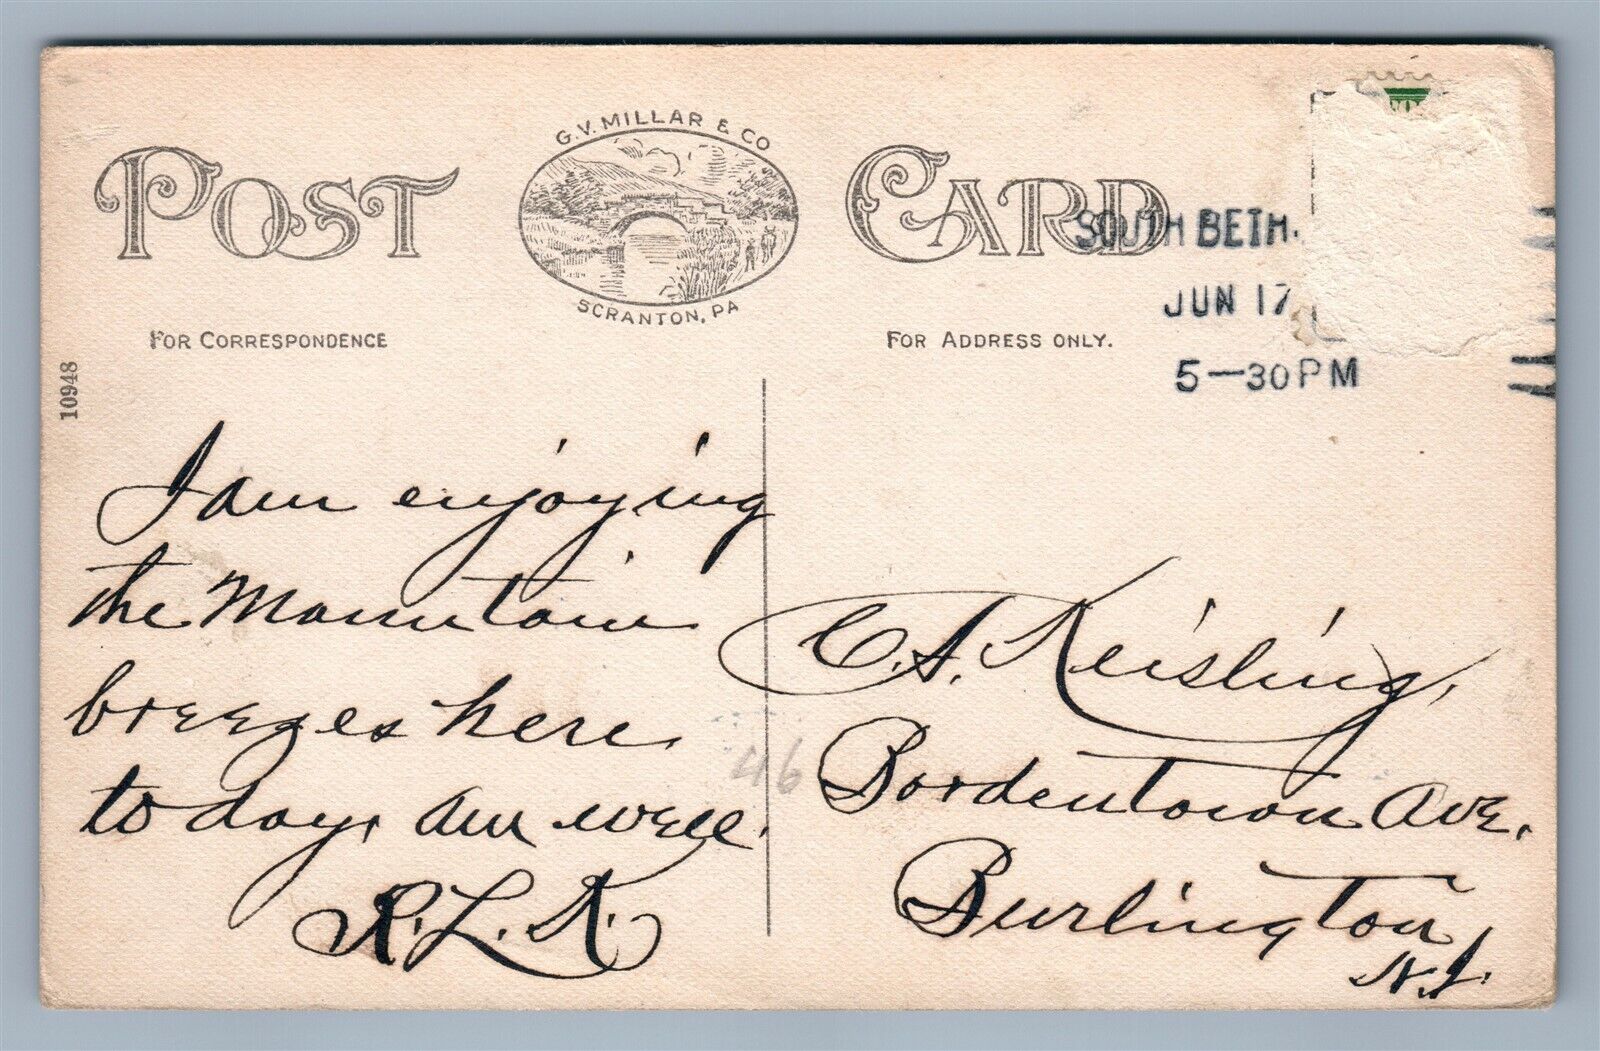 POST CARD
G.V. MILLAR & CO
SCRANTON, PA
SOUTH BETH.
JUN 17
5—30 PM
FOR CORRESPONDENCE
FOR ADDRESS ONLY.
10948
I am enjoying
the Mountain
breezes here
today, am well.
R. L. K.
46
C. A. Keisling,
Bordentown Ave,
Burlington
N. J.